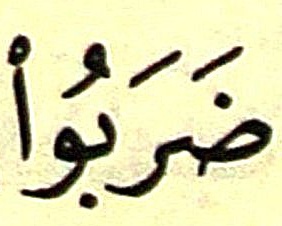 ضَرَبُوْا